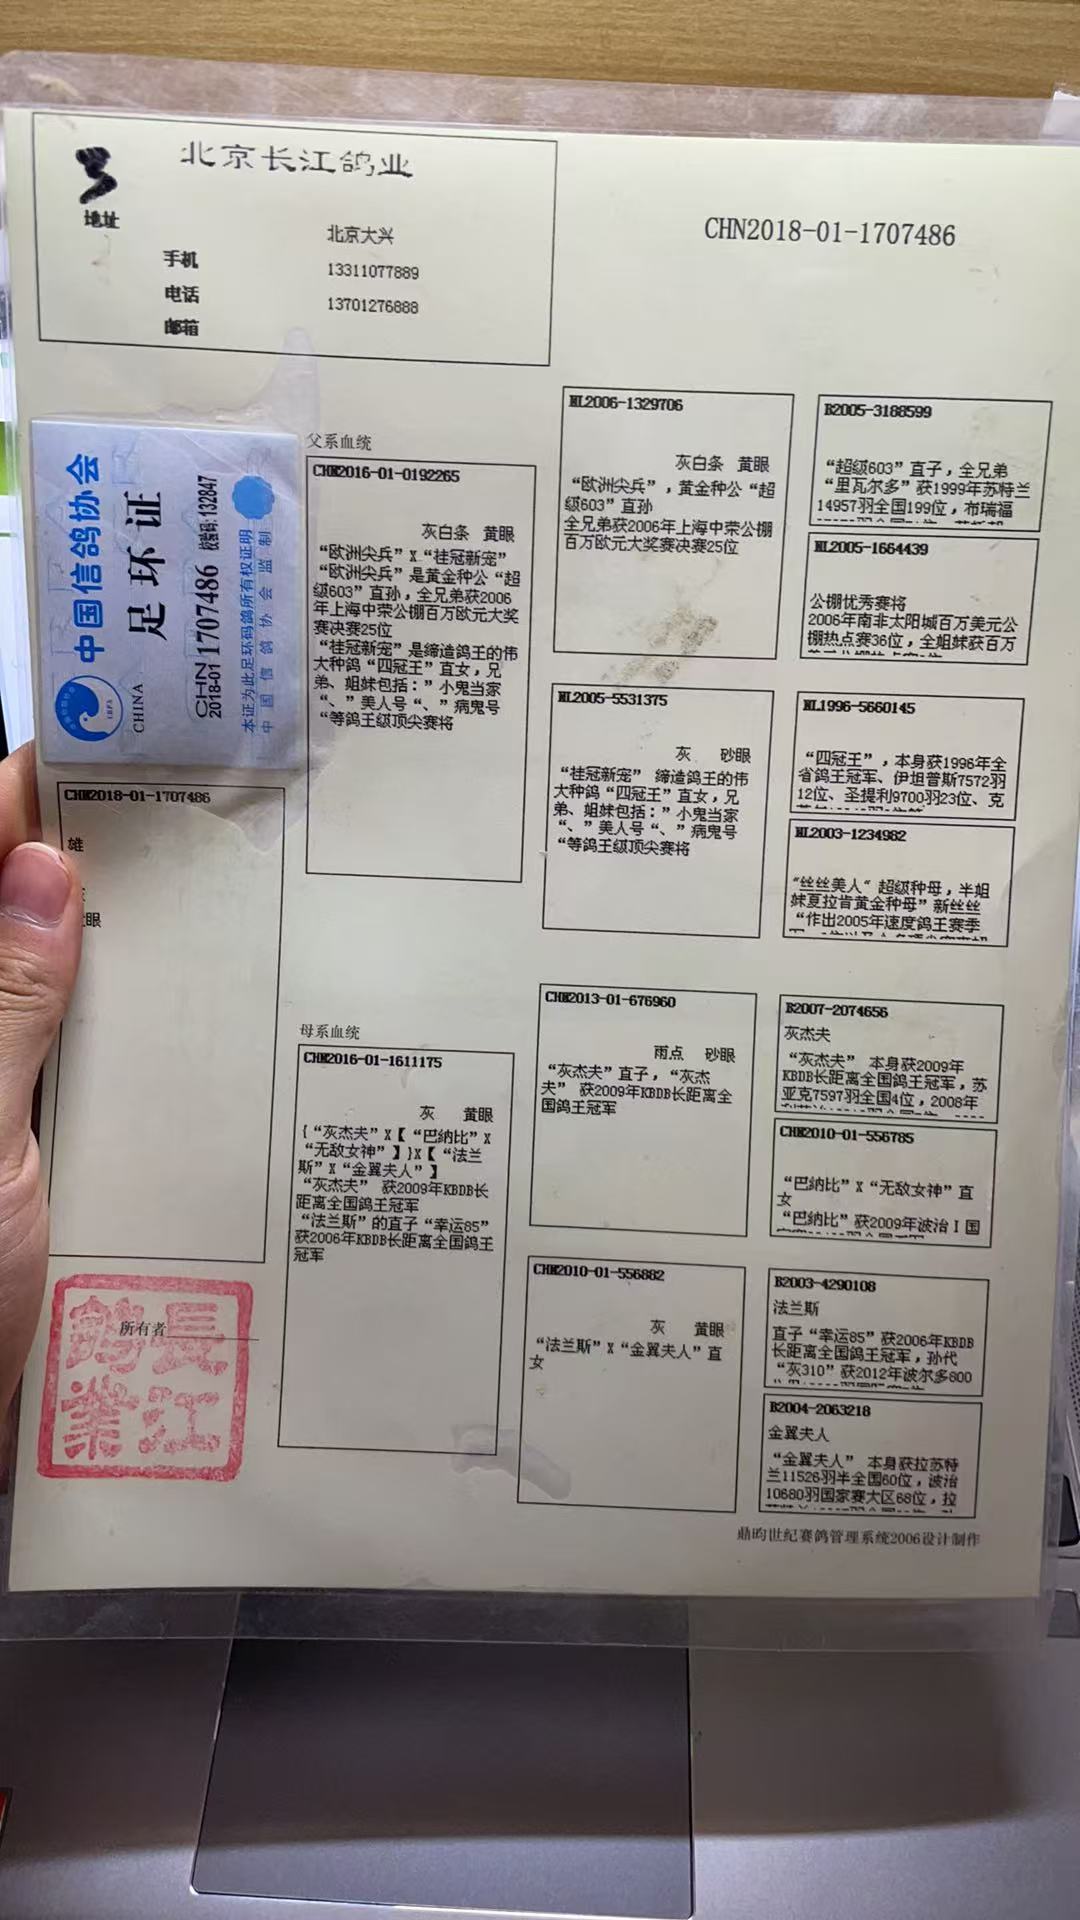 北京长江鸽业
地址
北京大兴
手机
13311077889
电话
13701276888
邮箱
CHN2018-01-1707486
中国信鸽协会
足环证
CHINA
CHN
2018-01
1707486
校验码:132847
本证为此足环码鸽所有权证明
中国信鸽协会监制
CHN2018-01-1707486
雄
眼
所有者
長江鴿業
父系血统
CHN2016-01-0192265
灰白条 黄眼
“欧洲尖兵”X“桂冠新宠”
“欧洲尖兵”是黄金种公“超
级603”直孙，全兄弟获2006
年上海中荣公棚百万欧元大奖
赛决赛25位
“桂冠新宠”是缔造鸽王的伟
大种鸽“四冠王”直女，兄
弟、姐妹包括：”小鬼当家
“、”美人号“、”病鬼号
“等鸽王级顶尖赛将
母系血统
CHN2016-01-1611175
灰 黄眼
{“灰杰夫”X【“巴纳比”X
“无敌女神”】}X【“法兰
斯”X“金翼夫人”】
“灰杰夫” 获2009年KBDB长
距离全国鸽王冠军
“法兰斯”的直子“幸运85”
获2006年KBDB长距离全国鸽王
冠军
NL2006-1329706
灰白条 黄眼
“欧洲尖兵”，黄金种公“超
级603”直孙
全兄弟获2006年上海中荣公棚
百万欧元大奖赛决赛25位
NL2005-5531375
灰 砂眼
“桂冠新宠” 缔造鸽王的伟
大种鸽“四冠王”直女，兄
弟、姐妹包括：”小鬼当家
“、”美人号“、”病鬼号
“等鸽王级顶尖赛将
CHN2013-01-676960
雨点 砂眼
“灰杰夫”直子，“灰杰
夫” 获2009年KBDB长距离全
国鸽王冠军
CHN2010-01-556882
灰 黄眼
“法兰斯”X“金翼夫人”直
女
B2005-3188599
“超级603”直子，全兄弟
“里瓦尔多”获1999年苏特兰
14957羽全国199位，布瑞福
NL2005-1664439
公棚优秀赛将
2006年南非太阳城百万美元公
棚热点赛36位，全姐妹获百万
NL1996-5660145
“四冠王”，本身获1996年全
省鸽王冠军、伊坦普斯7572羽
12位、圣提利9700羽23位、克
NL2003-1234982
“丝丝美人“ 超级种母，半姐
妹夏拉肯黄金种母”新丝丝
“作出2005年速度鸽王赛季
B2007-2074656
灰杰夫
“灰杰夫” 本身获2009年
KBDB长距离全国鸽王冠军，苏
亚克7597羽全国4位，2008年
CHN2010-01-556785
“巴纳比”X“无敌女神”直
女
“巴纳比”获2009年波治Ⅰ国
B2003-4290108
法兰斯
直子“幸运85”获2006年KBDB
长距离全国鸽王冠军，孙代
“灰310”获2012年波尔多800
B2004-2063218
金翼夫人
“金翼夫人” 本身获拉苏特
兰11526羽半全国60位，波治
10680羽国家赛大区68位，拉
鼎昀世纪赛鸽管理系统2006设计制作